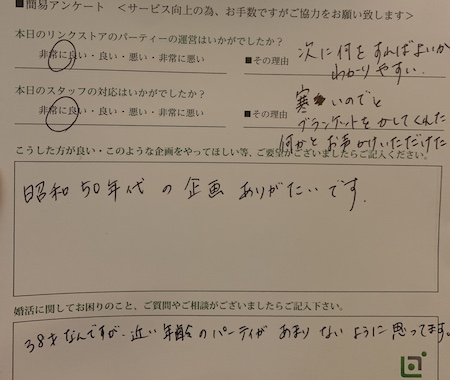 ■簡易アンケート <サービス向上の為、お手数ですがご協力をお願い致します>
本日のリンクストアのパーティーの運営はいかがでしたか?
非常に良い・良い・悪い・非常に悪い
■その理由
次に何をすればよいか
わかりやすい.
本日のスタッフの対応はいかがでしたか?
非常に良い・良い・悪い・非常に悪い
■その理由
寒いのでと
ブランケットをかしてくれた
何かとお声かけいただけた
こうした方が良い・このような企画をやってほしい等、ご要望がございましたらご記入ください。
昭和50年代の企画ありがたいです.
婚活に関してお困りのこと、ご質問やご相談がございましたらご記入下さい。
38才なんですが、近い年齢のパーティがあまりないように思ってます。